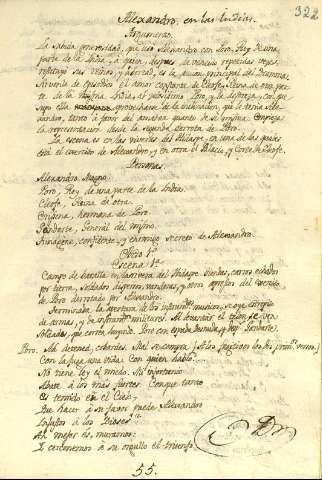 322
Alexandro, en las Indias.
Argumento.
La sabida generosidad, que usó Alexandro con Poro, Rey de una
parte de la India, a quien, despues de vencido repetidas veces,
restituyó sus Reinos, y libertad, es la accion principal del Drama.
Sirven de episodios el amor constante de Cleofe, Reina de otra par-
te de la misma India, al zelosisimo Poro, y la destreza, con que
supo ella aprovecharse de la inclinacion, que le tenia Ale-
xandro, tanto à favor del amante quanto de si misma. Empieza
la representacion desde la segunda derrota de Poro.
La escena es en las riveras del Hidaspe, en una de las quales
está el exercito de Alexandro, y en otra el Palacio, y Corte de Cleofe.
Personas.
Alexandro Magno.
Poro, Rey, de una parte de la India.
Cleofe, Reina de otra.
Erigena, hermana de Poro.
Gandarte, General del mismo.
Timagenes, confidente, y enemigo secreto de Alexandro.
Acto 1º
Escena 1ª
Campo de batalla en la rivera del Hidaspe. tiendas, carros echados
por tierra, soldados dispersos, vanderas, y otros despojos del exercito
de Poro derrotado por Alexandro.
Terminada la abertura de los instrumentos musicos, se oye estrepito
de armas, y de instrumentos militares. Al levantar el telon se verán
Soldados, que corren huyendo. Poro con espada desnuda, y luego Gandarte.
Poro. Ah! deteneos, cobardes. Mal se compra
Con la fuga una vida. Con quien hablo?
No tiene ley el miedo. Mi infortunio
Abate à los mas fuertes. Con que tanto
es temido en el Cielo,
Que hacer à su favor puede Alexandro
Injustos à los Dioses?
Ah mejor es, muramos:
I cercenemos à su orgullo el triunfo.
55.